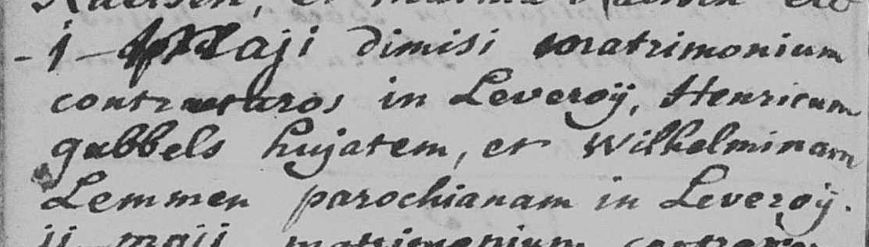 et
- j - Maji dimisi matrimonium
contracturos in Leveroÿ, Henricum
gubbels hujatem, et Wilhelminam
Lemmen parochianam in Leveroÿ.
ij maji matrimonium